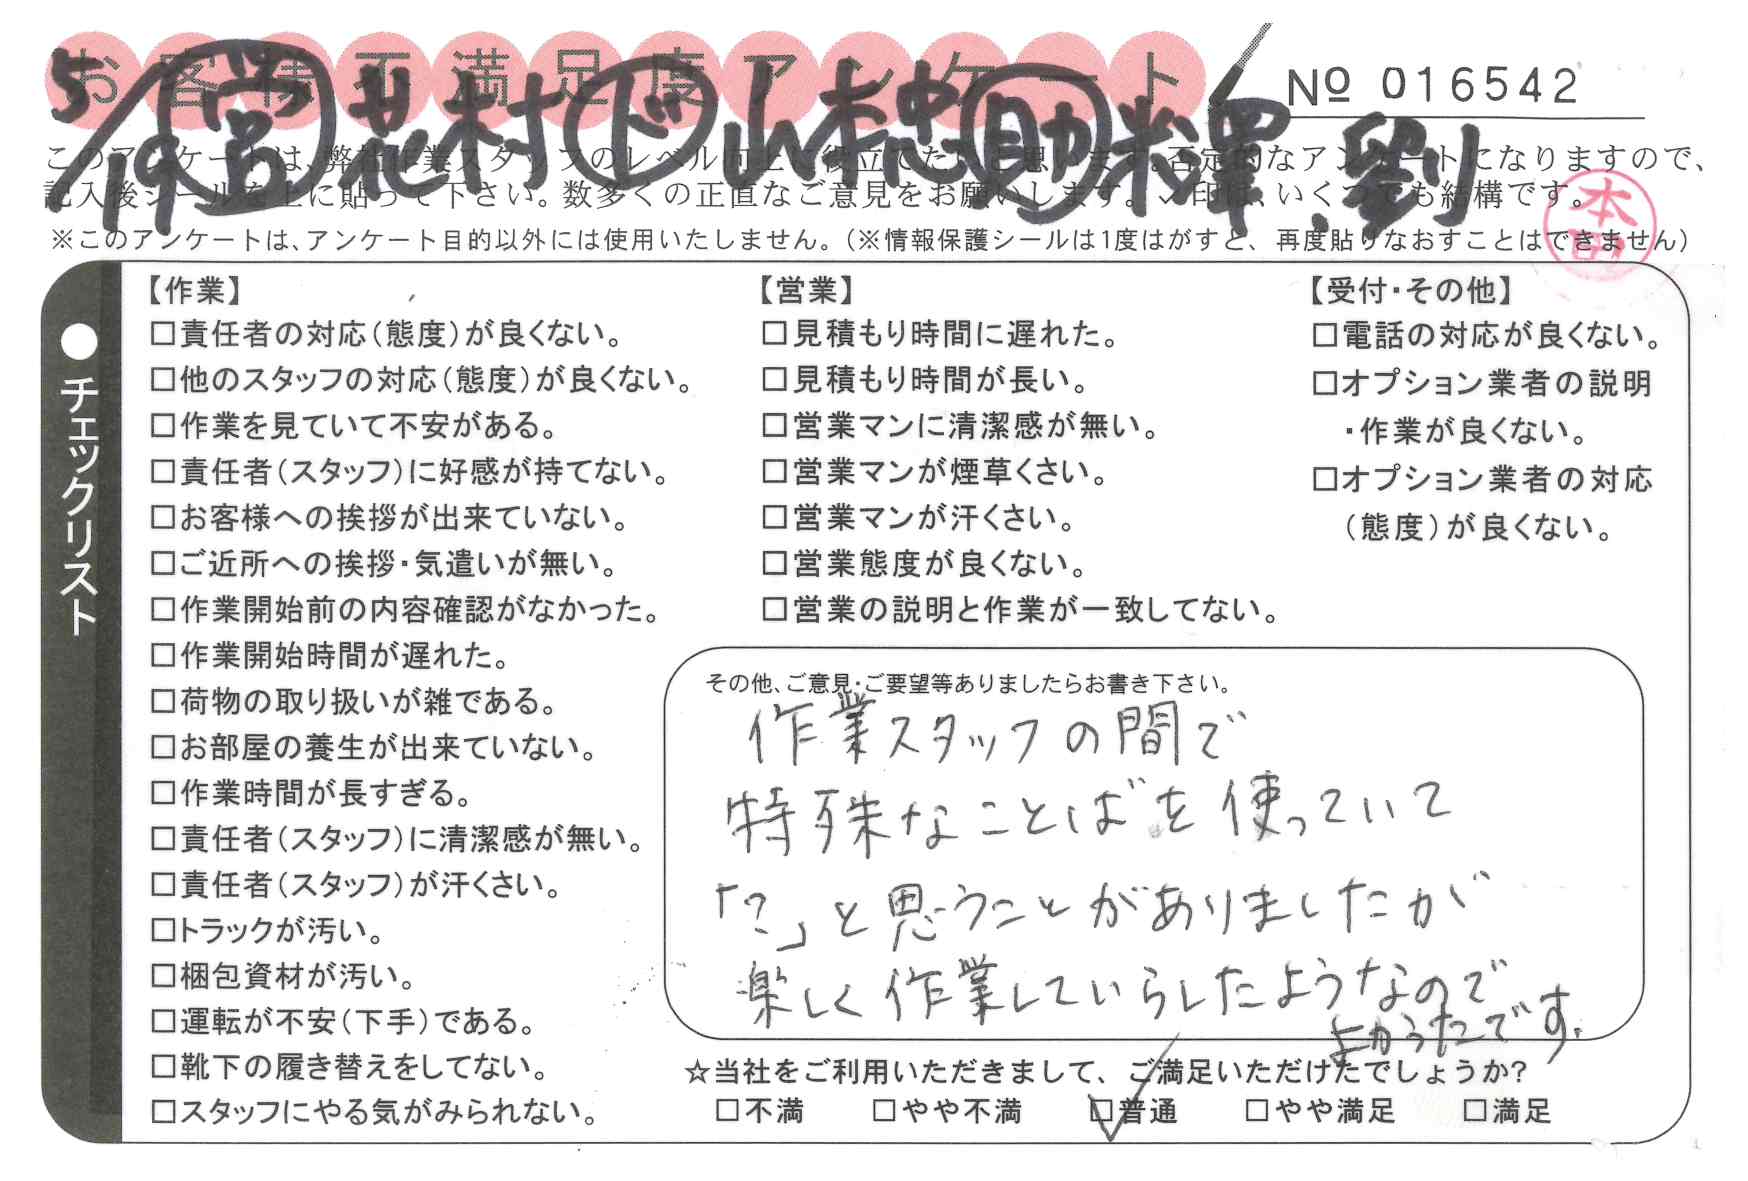 お客様不満足度アンケート
№ 016542
5/19 営 花村 ド 山本忠 助 輝、劉
このアンケートは、弊社作業スタッフのレベル向上に役立てたいと思います。否定的なアンケートになりますので、
記入後シールを上に貼って下さい。数多くの正直なご意見をお願いします。✓印は、いくつでも結構です。
本田
※このアンケートは、アンケート目的以外には使用いたしません。（※情報保護シールは1度はがすと、再度貼りなおすことはできません）
●チェックリスト
【作業】
□責任者の対応（態度）が良くない。
□他のスタッフの対応（態度）が良くない。
□作業を見ていて不安がある。
□責任者（スタッフ）に好感が持てない。
□お客様への挨拶が出来ていない。
□ご近所への挨拶・気遣いが無い。
□作業開始前の内容確認がなかった。
□作業開始時間が遅れた。
□荷物の取り扱いが雑である。
□お部屋の養生が出来ていない。
□作業時間が長すぎる。
□責任者（スタッフ）に清潔感が無い。
□責任者（スタッフ）が汗くさい。
□トラックが汚い。
□梱包資材が汚い。
□運転が不安（下手）である。
□靴下の履き替えをしてない。
□スタッフにやる気がみられない。
【営業】
□見積もり時間に遅れた。
□見積もり時間が長い。
□営業マンに清潔感が無い。
□営業マンが煙草くさい。
□営業マンが汗くさい。
□営業態度が良くない。
□営業の説明と作業が一致してない。
【受付・その他】
□電話の対応が良くない。
□オプション業者の説明
・作業が良くない。
□オプション業者の対応
（態度）が良くない。
その他、ご意見・ご要望等ありましたらお書き下さい。
作業スタッフの間で
特殊なことばを使っていて
「？」と思うことがありましたが
楽しく作業していらしたようなので
よかったです。
☆当社をご利用いただきまして、ご満足いただけたでしょうか?
□不満 □やや不満 □普通 □やや満足 □満足